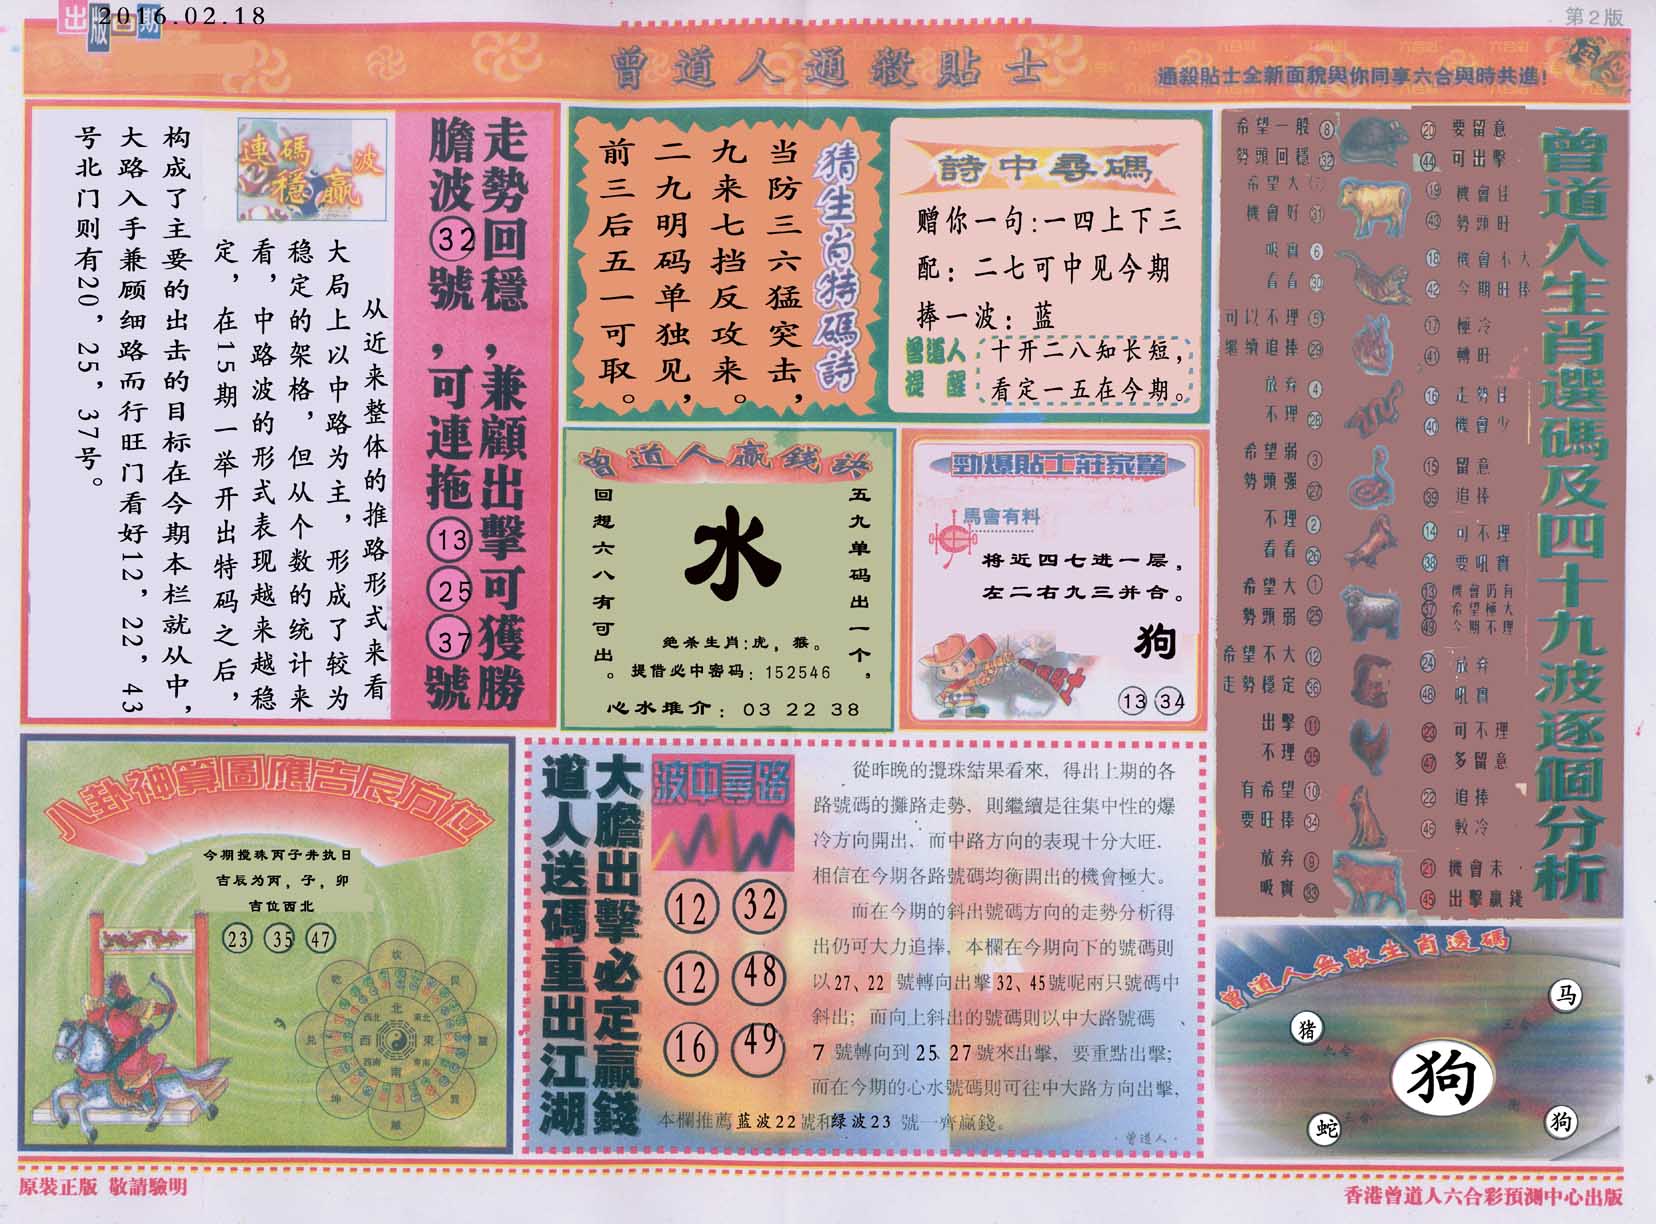 出版日期
2016.02.18
第2版
曾道人通殺貼士
通殺貼士全新面貌與你同享六合與時共進!
走勢回穩，兼顧出擊可獲勝
膽波32號，可連拖13 25 37號
連碼穩贏波
从近来整体的推路形式来看
大局上以中路为主，形成了较为
稳定的架格，但从个数的统计来
看，中路波的形式表现越来越稳
定，在15期一举开出特码之后，
构成了主要的出击的目标在今期本栏就从中，
大路入手兼顾细路而行旺门看好12，22，43
号北门则有20，25，37号。
猜生肖特碼詩
当防三六猛突击，
九来七挡反攻来。
二九明码单独见，
前三后五一可取。
詩中尋碼
赠你一句:一四上下三
配：二七可中见今期
捧一波：蓝
曾道人提醒
十开二八知长短，
看定一五在今期。
曾道人贏錢訣
五九单码出一个，
回想六八有可出。
水
绝杀生肖:虎，猴。
提借必中密码：152546
心水推介：03 22 38
勁爆貼士莊家驚
馬會有料
将近四七进一层，
左二右九三并合。
狗
13 34
曾道人生肖選碼及四十九波逐個分析
希望一般 8
勢頭回穩 32
20 要留意
44 可出擊
希望大 7
機會好 31
19 機會佳
43 勢頭旺
吸實 6
看看 30
18 機會不大
42 今期旺捧
可以不理 5
繼續追捧 29
17 極冷
41 轉旺
放弃 4
不理 28
16 走勢佳
40 機會少
希望弱 3
勢頭强 27
15 留意
39 追捧
不理 2
看看 26
14 可不理
38 要吼實
希望大 1
勢頭弱 25
13 機會仍有
37 希望極大
49 今期不理
希望不大 12
走勢穩定 36
24 放弃
48 吼實
出擊 11
不理 35
23 可不理
47 多留意
有希望 10
要旺捧 34
22 追捧
46 較冷
放弃 9
吸實 33
21 機會未
45 出擊贏錢
八卦神算圖應吉辰方位
今期搅珠丙子井执日
吉辰为丙，子，卯
吉位西北
23 35 47
坎
艮
震
巽
離
坤
兑
乾
北
東北
東
東南
南
西南
西
西北
大膽出擊必定贏錢
道人送碼重出江湖
波中尋路
12 32
12 48
16 49
從昨晚的攪珠結果看來，得出上期的各
路號碼的攤路走勢，則繼續是往集中性的爆
冷方向開出，而中路方向的表現十分大旺.
相信在今期各路號碼均衡開出的機會極大。
而在今期的斜出號碼方向的走勢分析得
出仍可大力追捧，本欄在今期向下的號碼則
以27、22 號轉向出擊32、45號呢兩只號碼中
斜出；而向上斜出的號碼則以中大路號碼、
7 號轉向到 25 27號來出擊，要重點出擊；
而在今期的心水號碼則可往中大路方向出擊，
本欄推薦 蓝波22號和绿波23 號一齊贏錢。
·曾道人·
曾道人無敵生肖透碼
马
猪
六合
三合
狗
蛇
三合
衝
狗
原裝正版 敬請驗明
香港曾道人六合彩預測中心出版